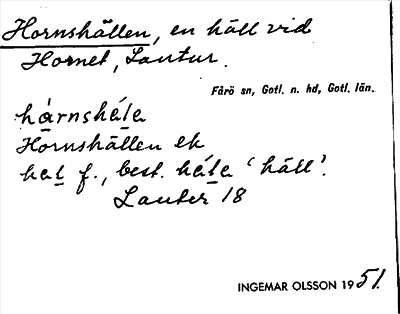 Hornshällen, en häll vid
Hornet, Lautur.
Fårö sn, Gotl. n. hd, Gotl. län.
hárnshéla
Hornshällen ek
hel f., best. héla 'häll'.
Lauter 18
INGEMAR OLSSON 1951.